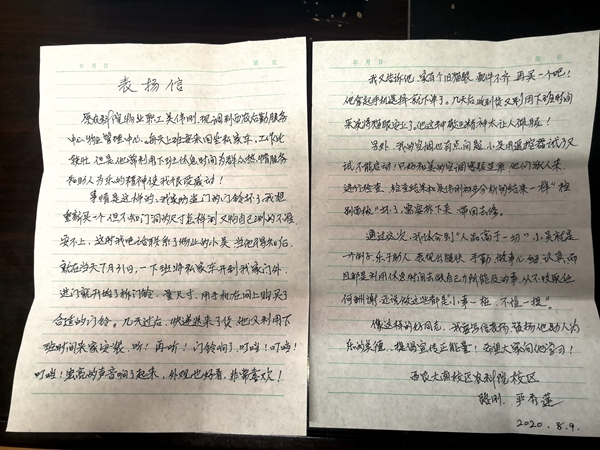 表扬信
原农科院物业职工吴伟刚,现调到西农后勤服务
中心物业管理中心,每天上班要来回坐私家车,工作比
较忙,但是他常利用下班休息时间为群众热情服务
和助人为乐的精神使我很受感动!
事情是这样的,我家防盗门的门铃坏了,我想
重新买一个但不知门洞的尺寸怎样测,又怕自己测的不准
安不上,这时我电话联系了物业的小吴,当他得知后,
就在当天7月31日,一下班将私家车开到我家门外,
进门就开始了拆门铃,量尺寸,用手机在网上购买了
合适的门铃。几天过后,快递送来了货,他又利用下
班时间来家安装,听!再听!门铃响了,叮噹!叮噹!
叮噹!宏亮的声音响了起来,外观也好看,非常喜欢!
我又告诉他,家有个旧猫眼,配件不齐,再买一个吧!
他拿起手机选择就下单了。几天后收到货又利用下班时间
来家将猫眼安上了。他这种敬业精神太让人佩服!
另外,我的空调也有点问题,小吴用遥控器试了又
试不能启动!只好和美的空调客服联系,他们派人来
进行检查,检查结果和吴伟刚初步分析的结果一样“控
制面板”坏了,需要拆下来带回去修。
通过这次,我体会到“人品高于一切”,小吴就是
一个例子,乐于助人,表现的腿快,手勤,做事心细,认真,而
且都是利用休息时间去做自己力所能及的事,从不收取任
何酬谢,还说“做这些都是小事一桩,不值一提”。
像这样的好同志,我要写信表扬,赞扬他助人为
乐的美德,提倡宣传正能量!希望大家向他学习!
西农大南校区农科院校区
路刚 严秀莲
2020.8.9.